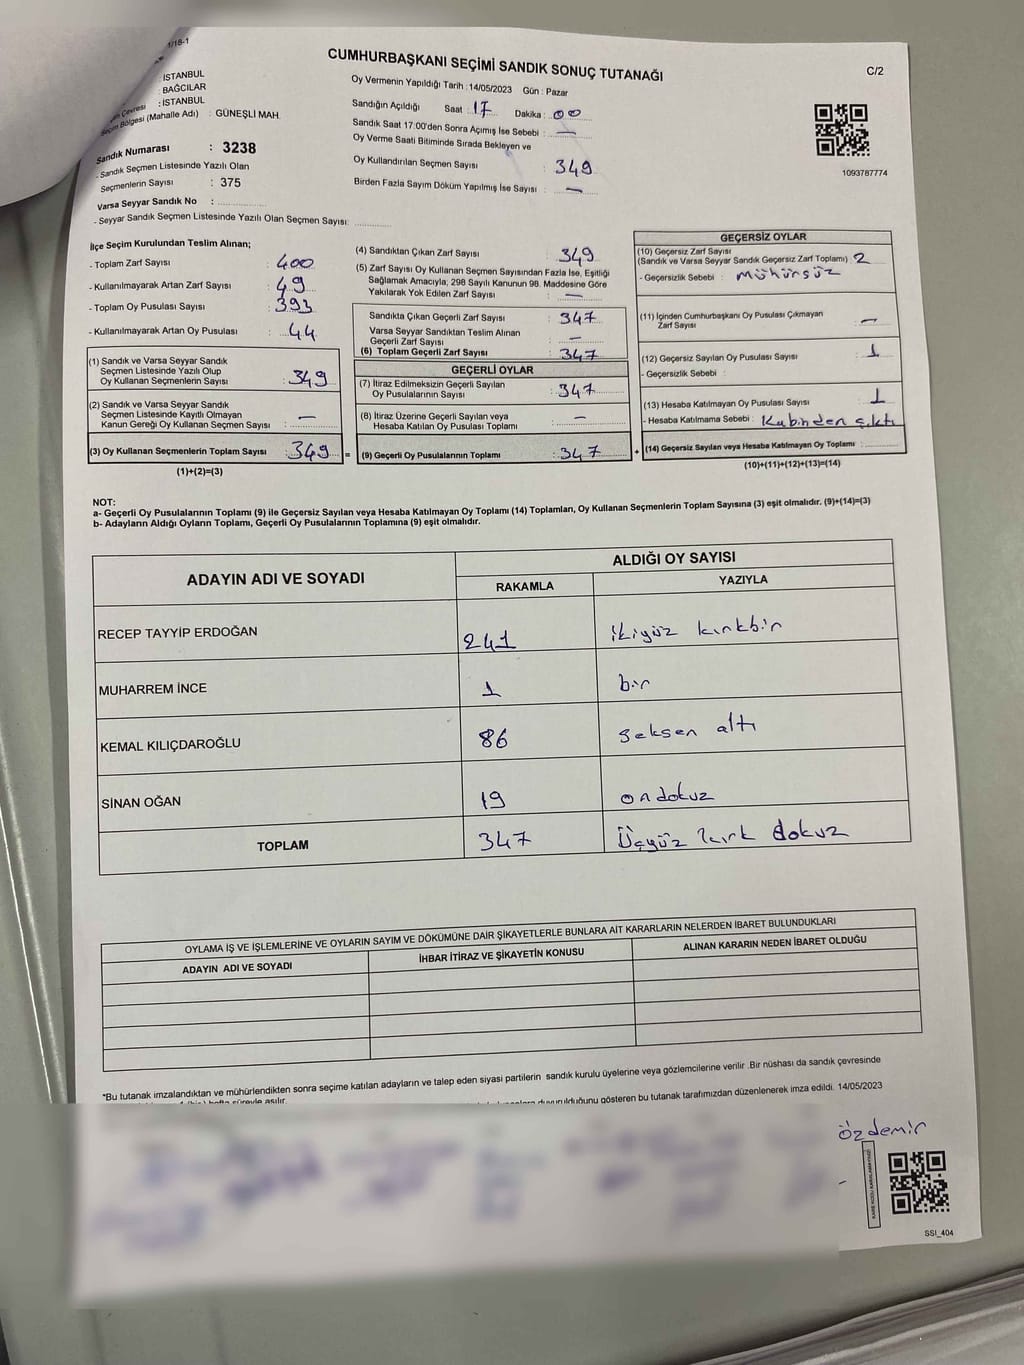 1/18-1
CUMHURBAŞKANI SEÇİMİ SANDIK SONUÇ TUTANAĞI
C/2
: İSTANBUL
: BAĞCILAR
Çevresi : İSTANBUL
Seçim Bölgesi (Mahalle Adı) : GÜNEŞLİ MAH.
Sandık Numarası : 3238
- Sandık Seçmen Listesinde Yazılı Olan
Seçmenlerin Sayısı : 375
Varsa Seyyar Sandık No :
- Seyyar Sandık Seçmen Listesinde Yazılı Olan Seçmen Sayısı:
Oy Vermenin Yapıldığı Tarih : 14/05/2023 Gün : Pazar
Sandığın Açıldığı Saat : 17 Dakika : 00
Sandık Saat 17:00'den Sonra Açımış İse Sebebi : —
Oy Verme Saati Bitiminde Sırada Bekleyen ve
Oy Kullandırılan Seçmen Sayısı : 349
Birden Fazla Sayım Döküm Yapılmış İse Sayısı : —
1093787774
İlçe Seçim Kurulundan Teslim Alınan;
- Toplam Zarf Sayısı : 400
- Kullanılmayarak Artan Zarf Sayısı : 49
- Toplam Oy Pusulası Sayısı : 393
- Kullanılmayarak Artan Oy Pusulası : 44
(1) Sandık ve Varsa Seyyar Sandık
Seçmen Listesinde Yazılı Olup
Oy Kullanan Seçmenlerin Sayısı : 349
(2) Sandık ve Varsa Seyyar Sandık
Seçmen Listesinde Kayıtlı Olmayan
Kanun Gereği Oy Kullanan Seçmen Sayısı : —
(3) Oy Kullanan Seçmenlerin Toplam Sayısı : 349 =
(1)+(2)=(3)
(4) Sandıktan Çıkan Zarf Sayısı : 349
(5) Zarf Sayısı Oy Kullanan Seçmen Sayısından Fazla İse, Eşitliği
Sağlamak Amacıyla; 298 Sayılı Kanunun 98. Maddesine Göre
Yakılarak Yok Edilen Zarf Sayısı : —
Sandıkta Çıkan Geçerli Zarf Sayısı : 347
Varsa Seyyar Sandıktan Teslim Alınan
Geçerli Zarf Sayısı : —
(6) Toplam Geçerli Zarf Sayısı : 347
GEÇERLİ OYLAR
(7) İtiraz Edilmeksizin Geçerli Sayılan
Oy Pusulalarının Sayısı : 347
(8) İtiraz Üzerine Geçerli Sayılan veya
Hesaba Katılan Oy Pusulası Toplamı : —
(9) Geçerli Oy Pusulalarının Toplamı : 347 +
GEÇERSİZ OYLAR
(10) Geçersiz Zarf Sayısı
(Sandık ve Varsa Seyyar Sandık Geçersiz Zarf Toplamı) : 2
- Geçersizlik Sebebi : Mühürsüz
(11) İçinden Cumhurbaşkanı Oy Pusulası Çıkmayan
Zarf Sayısı : —
(12) Geçersiz Sayılan Oy Pusulası Sayısı : 1
- Geçersizlik Sebebi :
(13) Hesaba Katılmayan Oy Pusulası Sayısı : 1
- Hesaba Katılmama Sebebi : Kabinden çıktı
(14) Geçersiz Sayılan veya Hesaba Katılmayan Oy Toplamı :
(10)+(11)+(12)+(13)=(14)
NOT:
a- Geçerli Oy Pusulalarının Toplamı (9) ile Geçersiz Sayılan veya Hesaba Katılmayan Oy Toplamı (14) Toplamları, Oy Kullanan Seçmenlerin Toplam Sayısına (3) eşit olmalıdır. (9)+(14)=(3)
b- Adayların Aldığı Oyların Toplamı, Geçerli Oy Pusulalarının Toplamına (9) eşit olmalıdır.
ADAYIN ADI VE SOYADI ALDIĞI OY SAYISI
RAKAMLA YAZIYLA
RECEP TAYYİP ERDOĞAN 241 ikiyüz kırkbir
MUHARREM İNCE 1 bir
KEMAL KILIÇDAROĞLU 86 seksen altı
SİNAN OĞAN 19 ondokuz
TOPLAM 347 Üçyüz kırk dokuz
OYLAMA İŞ VE İŞLEMLERİNE VE OYLARIN SAYIM VE DÖKÜMÜNE DAİR ŞİKAYETLERLE BUNLARA AİT KARARLARIN NELERDEN İBARET BULUNDUKLARI
ADAYIN ADI VE SOYADI İHBAR İTİRAZ VE ŞİKAYETİN KONUSU ALINAN KARARIN NEDEN İBARET OLDUĞU
*Bu tutanak imzalandıktan ve mühürlendikten sonra seçime katılan adayların ve talep eden siyasi partilerin sandık kurulu üyelerine veya gözlemcilerine verilir .Bir nüshası da sandık çevresinde
hafta süreyle asılır.
duyurulduğunu gösteren bu tutanak tarafımızdan düzenlenerek imza edildi. 14/05/2023
özdemir
SSI_404